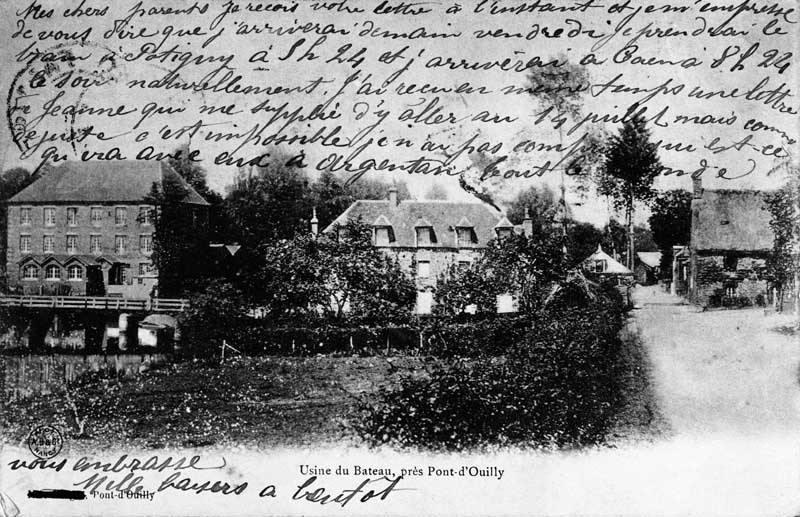 Mes chers parents je reçois votre lettre à l'instant et je m'empresse
de vous dire que j'arriverai demain vendredi je prendrai le
train à Potigny à 5h 24 et j'arriverai à Caen à 8h 22
le soir naturellement. J'ai recu en même temps une lettre
Jeanne qui me supplie d'y aller au 14 juillet mais comm
c'est impossible je n'ai pas compris qui est ce
qu'ira avec eux à Argentan tout le monde
vous embrasse
Mille baisers a bientôt
Usine du Bateau, près Pont-d'Ouilly
Pont-d'Ouilly